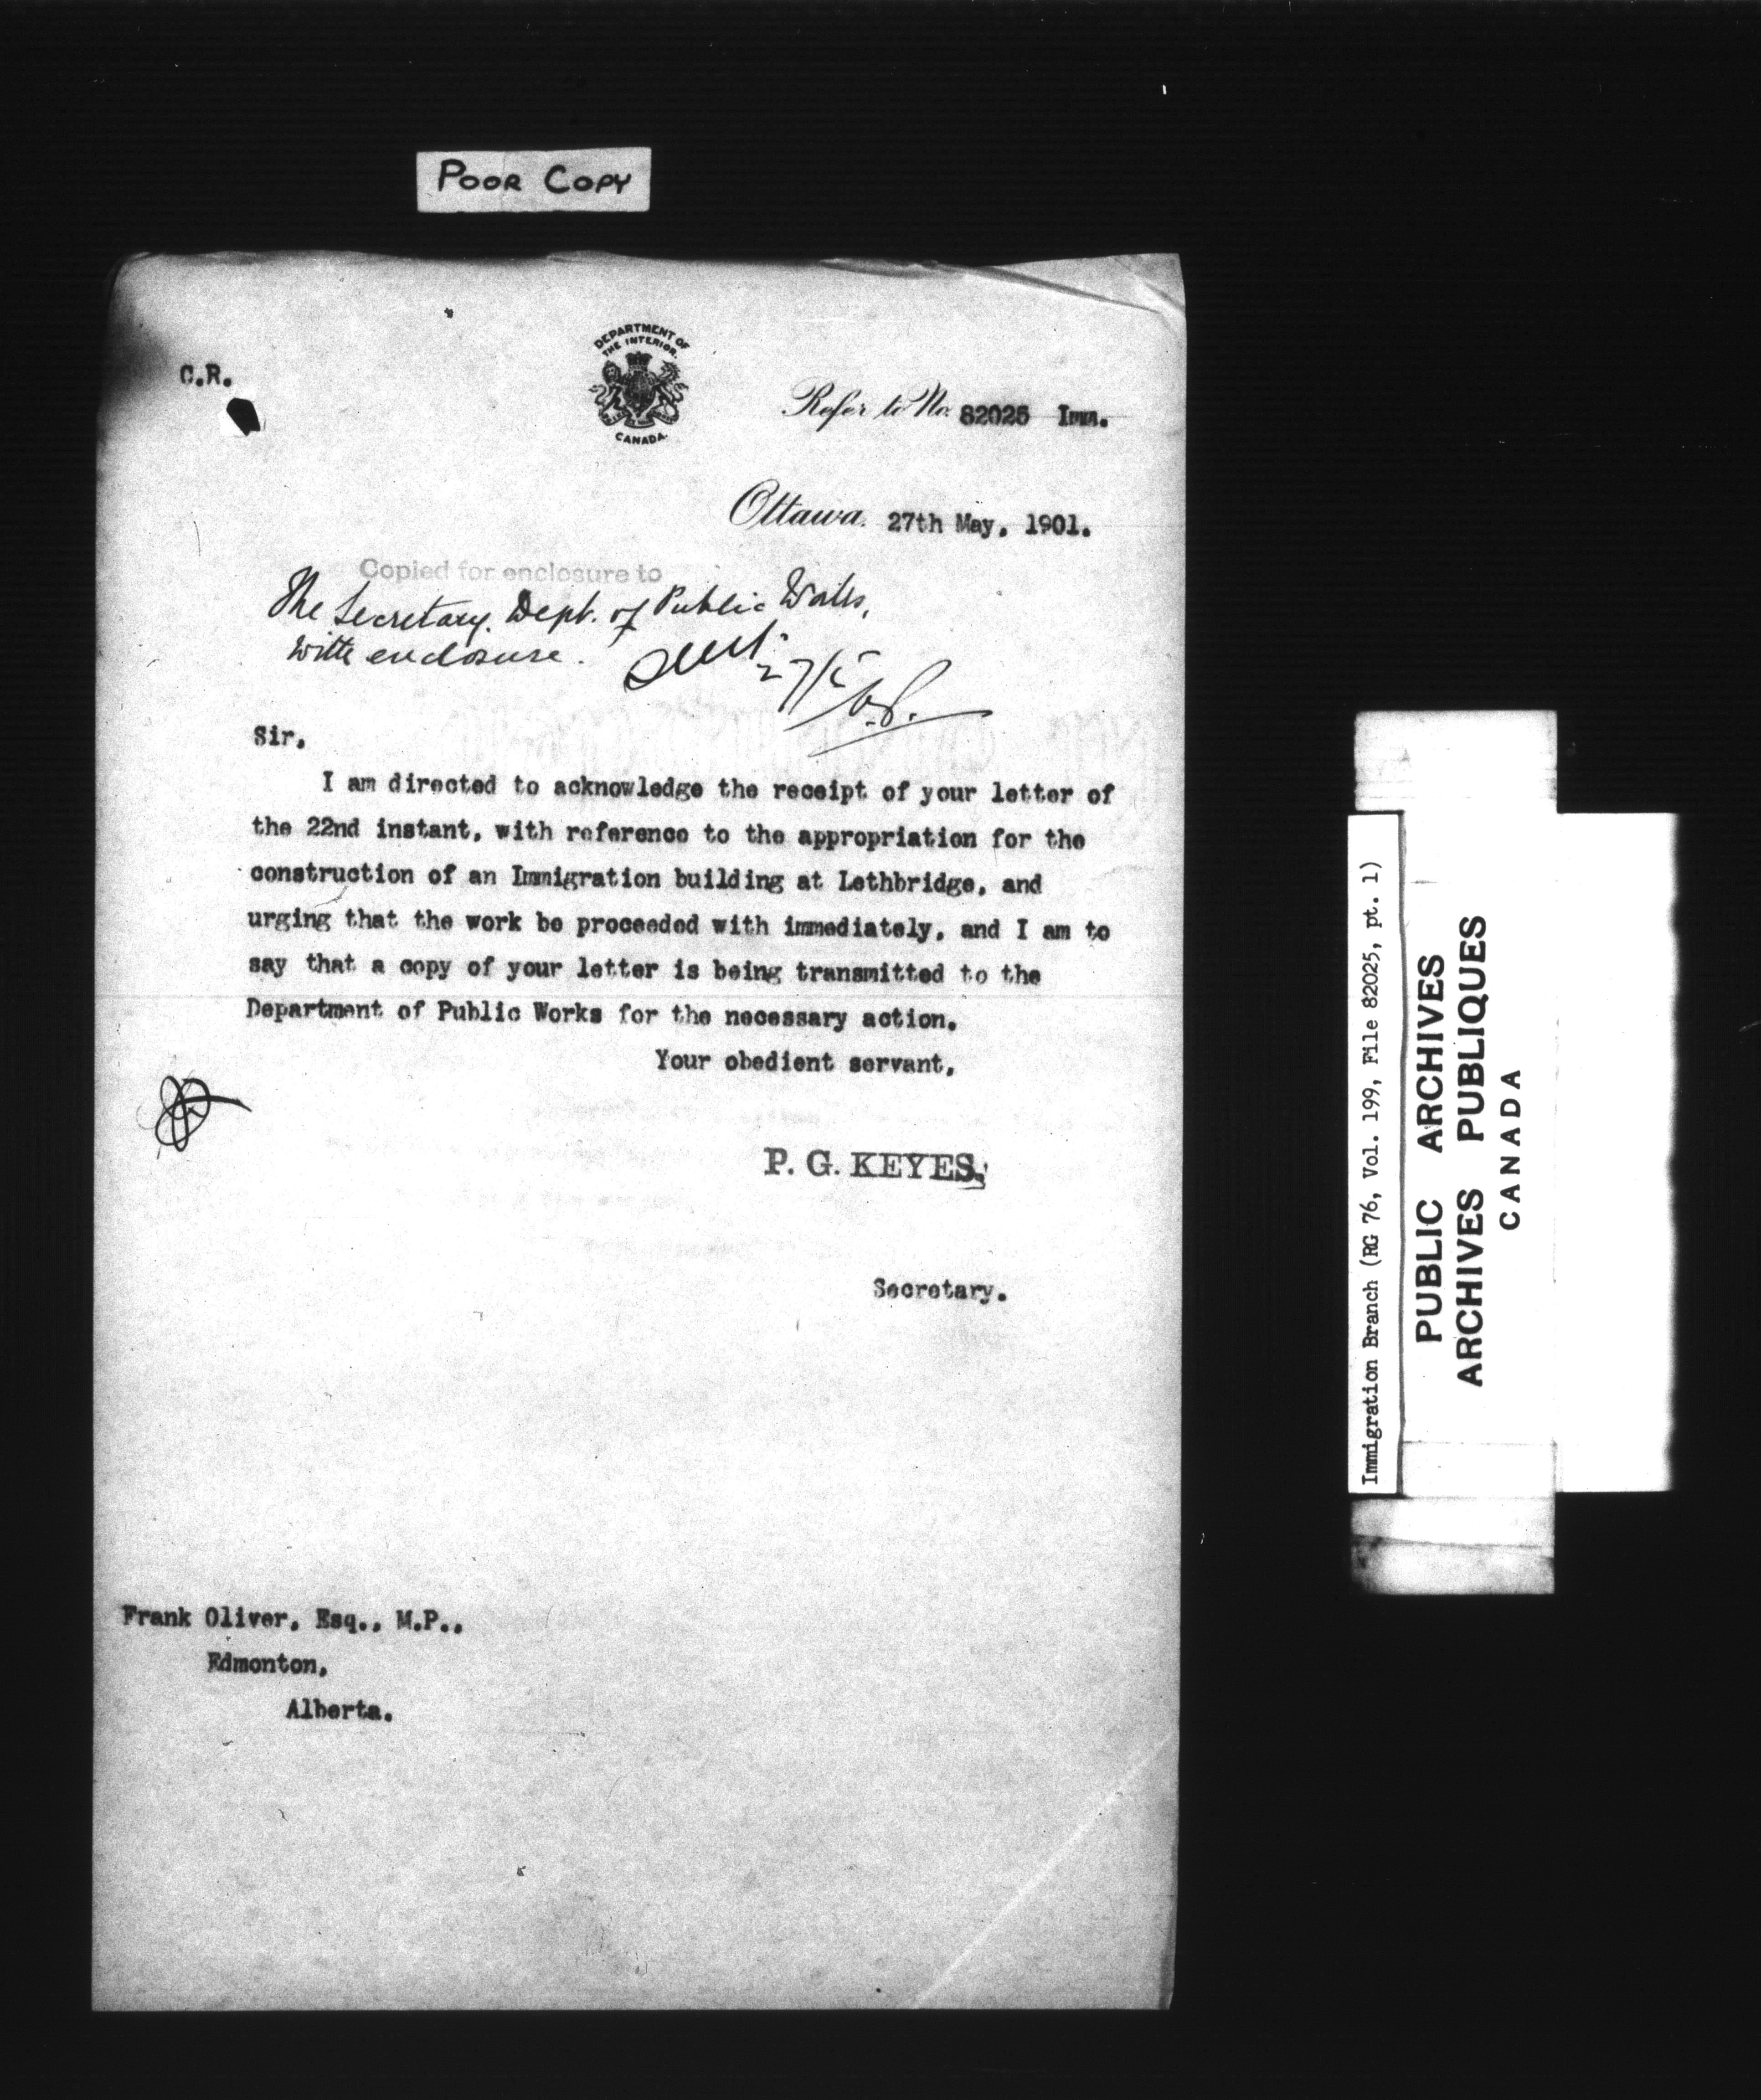 POOR COPY
C.R.
DEPARTMENT OF
THE INTERIOR.
CANADA.
Refer to No. 82025 Imm.
Ottawa. 27th May, 1901.
Copied for enclosure to
The Secretary. Dept. of Public Works,
With enclosure.
27/5
Sir,
I am directed to acknowledge the receipt of your letter of
the 22nd instant, with reference to the appropriation for the
construction of an Immigration building at Lethbridge, and
urging that the work be proceeded with immediately, and I am to
say that a copy of your letter is being transmitted to the
Department of Public Works for the necessary action.
Your obedient servant,
P. G. KEYES,
Secretary.
Frank Oliver, Esq., M.P.,
Edmonton,
Alberta.
Immigration Branch (RG 76, Vol. 199, File 82025, pt. 1)
PUBLIC ARCHIVES
ARCHIVES PUBLIQUES
CANADA